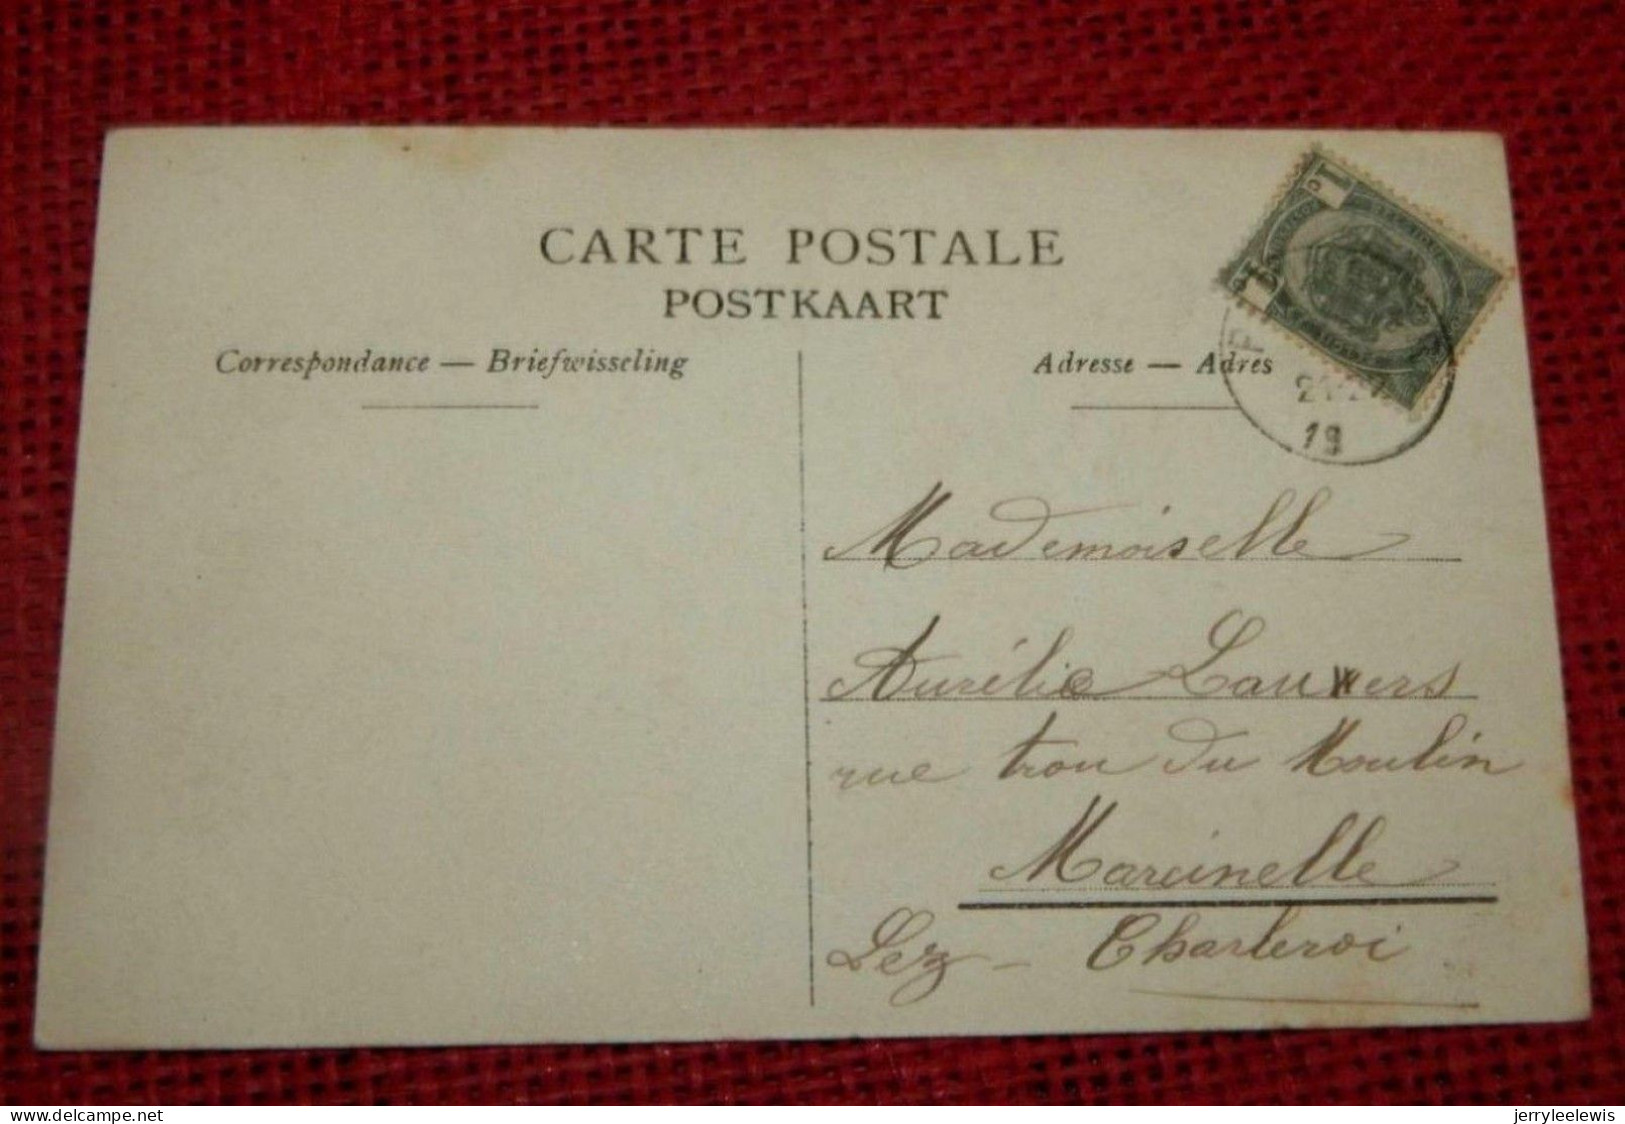 CARTE POSTALE
POSTKAART
Correspondance — Briefwisseling
Adresse — Adres
1
1
19
Mademoiselle
Aurélie Lauwers
rue trou du Moulin
Marcinelle
Lez - Charleroi
www.delcampe.net
jerryleelewis